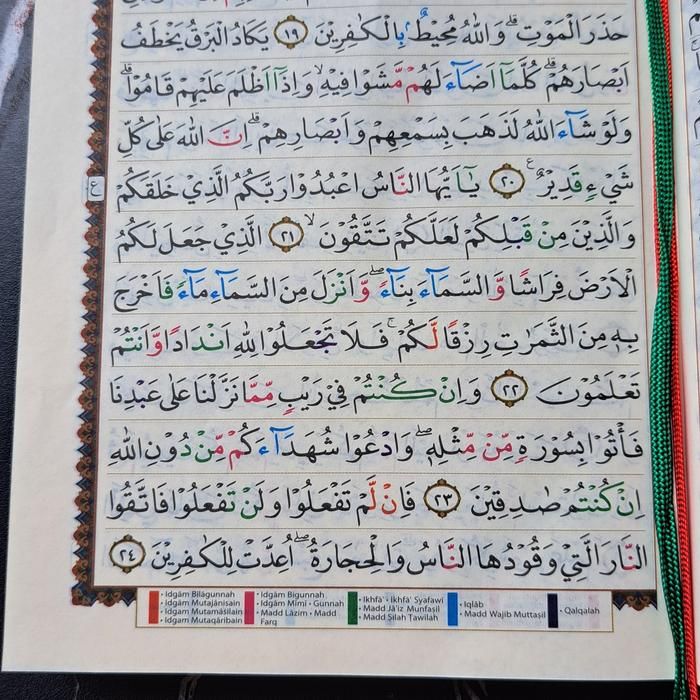 حَذَرَ الْمَوْتِۗ وَاللّٰهُ مُحِيْطٌۢ بِالْكٰفِرِيْنَ ١٩ يَكَادُ الْبَرْقُ يَخْطَفُ
اَبْصَارَهُمْۗ كُلَّمَآ اَضَاۤءَ لَهُمْ مَّشَوْا فِيْهِۙ وَاِذَآ اَظْلَمَ عَلَيْهِمْ قَامُوْاۗ
وَلَوْ شَاۤءَ اللّٰهُ لَذَهَبَ بِسَمْعِهِمْ وَاَبْصَارِهِمْۗ اِنَّ اللّٰهَ عَلٰى كُلِّ
شَيْءٍ قَدِيْرٌࣖ ٢٠ يٰٓاَيُّهَا النَّاسُ اعْبُدُوْا رَبَّكُمُ الَّذِيْ خَلَقَكُمْ
ع
وَالَّذِيْنَ مِنْ قَبْلِكُمْ لَعَلَّكُمْ تَتَّقُوْنَۙ ٢١ الَّذِيْ جَعَلَ لَكُمُ
الْاَرْضَ فِرَاشًا وَّالسَّمَاۤءَ بِنَاۤءًۖ وَّاَنْزَلَ مِنَ السَّمَاۤءِ مَاۤءً فَاَخْرَجَ
بِهٖ مِنَ الثَّمَرٰتِ رِزْقًا لَّكُمْۚ فَلَا تَجْعَلُوْا لِلّٰهِ اَنْدَادًا وَّاَنْتُمْ
تَعْلَمُوْنَ ٢٢ وَاِنْ كُنْتُمْ فِيْ رَيْبٍ مِّمَّا نَزَّلْنَا عَلٰى عَبْدِنَا
فَأْتُوْا بِسُوْرَةٍ مِّنْ مِّثْلِهٖۖ وَادْعُوْا شُهَدَاۤءَكُمْ مِّنْ دُوْنِ اللّٰهِ
اِنْ كُنْتُمْ صٰدِقِيْنَ ٢٣ فَاِنْ لَّمْ تَفْعَلُوْا وَلَنْ تَفْعَلُوْا فَاتَّقُوا
النَّارَ الَّتِيْ وَقُوْدُهَا النَّاسُ وَالْحِجَارَةُۖ اُعِدَّتْ لِلْكٰفِرِيْنَ ٢٤
• Idgām Bilāgunnah • Idgām Mutajānisain • Idgam Mutamāṡilain • Idgam Mutaqāribain
• Idgām Bigunnah • Idgām Mīmī • Gunnah • Madd Lāzim • Madd Farq
• Ikhfā' • Ikhfā' Syafawī • Madd Jā'iz Munfaṣil • Madd Ṣilah Ṭawīlah
• Iqlāb • Madd Wajib Muttaṣil
• Qalqalah